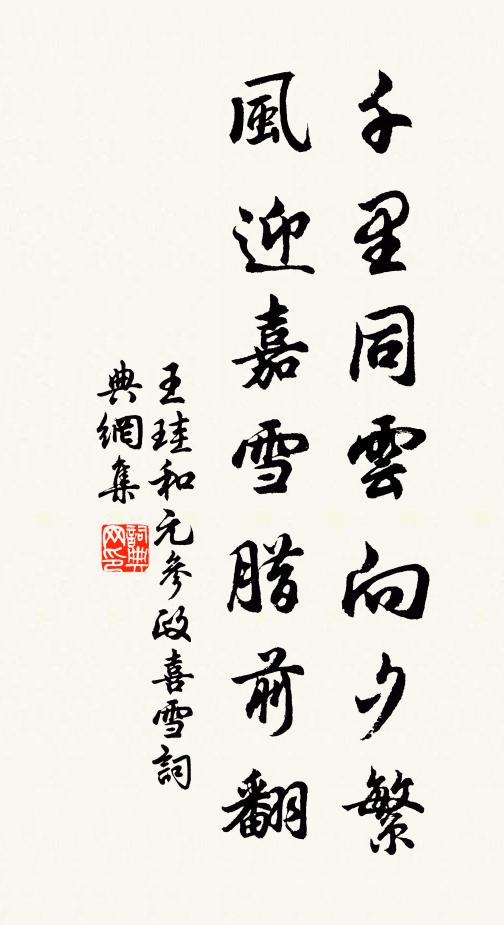 千里同雲向夕繁
風迎嘉雪腊前翻
王珪和元參政喜雪詞
典網集
詞典
网印